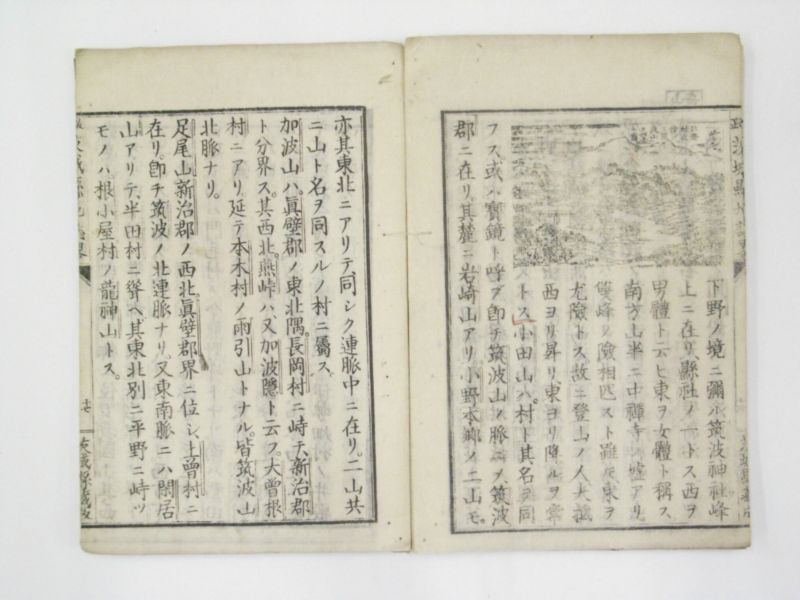 下野ノ境ニ彌ル筑波神社峰
上ニ在リ縣社ノ一トス西ヲ
男體ト云ヒ東ヲ女體ト稱ス
南方山半ニ中禪寺ノ墟アリ
雙峰ノ險相匹スト雖𪜈東ヲ
尤險トス故ニ登山ノ人大抵
西ヨリ昇リ東ヨリ降ルヲ常
トス小田山ハ村ト其名ヲ同
フス或ハ寶鏡ト呼ブ卽チ筑波山ノ脈ニヲ筑波
郡ニ在リ其麓ニ岩﨑山アリ小野本郷ノ二山モ
亦其東北ニアリテ同シク連脈中ニ在リ二山共
ニ山ト名ヲ同スルノ村ニ屬ス
加波山ハ眞壁郡ノ東北隅長岡村ニ峙チ新治郡
ト分界ス其西北燕峠ハ又加波隱ト云フ大曽根
村ニアリ延テ本木村ノ雨引山トナル皆筑波山
北脈ナリ
足尾山新治郡ノ西北眞壁郡界ニ位シ上曽村ニ
在リ卽チ筑波ノ北連脈ナリ又東南脈ニハ閑居
山アリテ半田村ニ聳ヘ其東北別ニ平野ニ峙ツ
モノハ根小屋村ノ龍神山トス